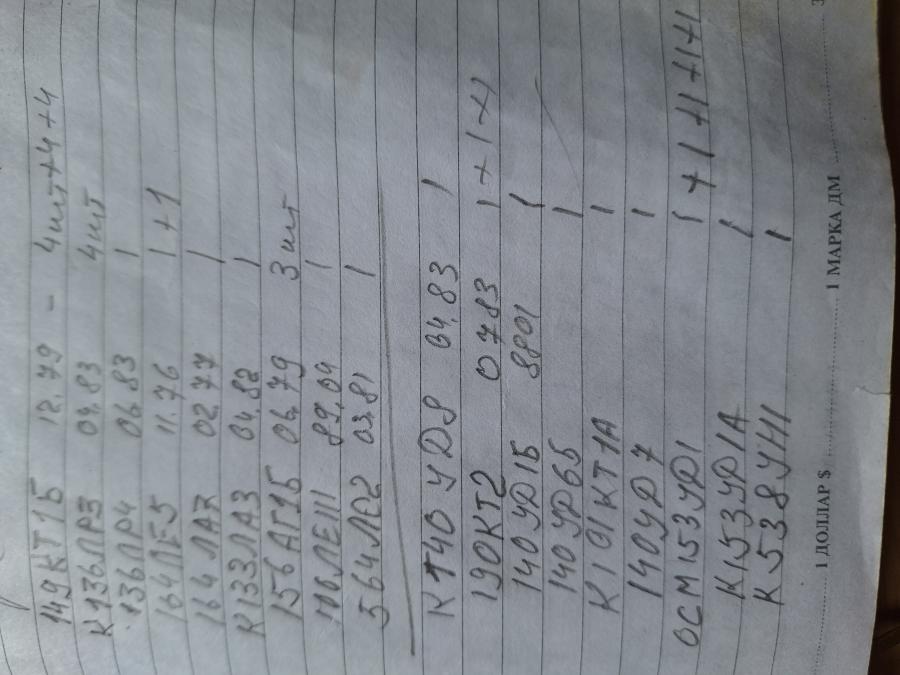 149КТ1Б 12.79 - 4шт+4+4
К136ЛР3 04.83 4шт
136ЛР4 06.83 1
164ЛЕ5 11.76 1+1
164ЛА7 02.77 1
К133ЛА3 04.82 1
156АГ1Б 06.79 3шт
106ЛЕ111 89.04 1
564ЛЕ2 03.81 1
КТ40УД8 04.83 1
190КТ2 0783 1+1+1
140УД1Б 8801 1
140УД6Б 1
К101КТ1А 1
140УД7 1
ОСМ153УД1 1+1+1+1+1
К153УД1А 1
К538УН1 1
1 ДОЛЛАР $ 1 МАРКА ДМ